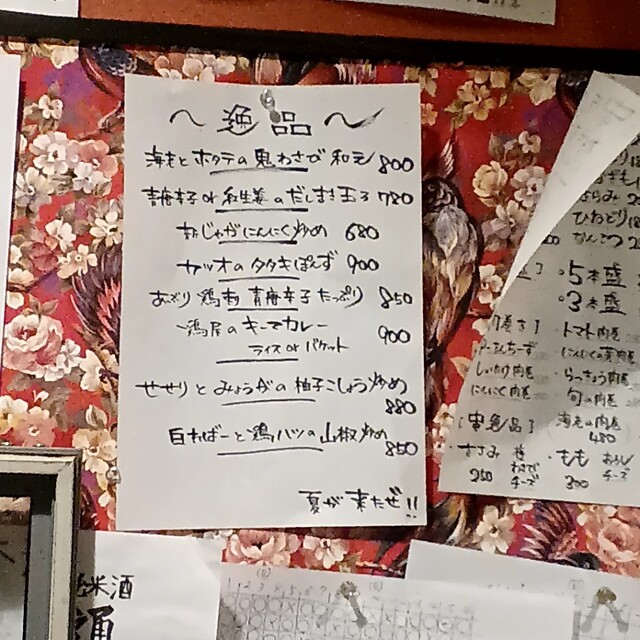 〜絶品〜
海老とホタテの鬼わさび和え 800
青唐辛子or紅生姜のだしまき玉子 780
新じゃがにんにく炒め 680
カツオのタタキぽんず 900
あぶり鶏刺 青唐辛子たっぷり 850
鶏屋のキーマカレー
ライスorバケット 900
せせりとみょうがの柚子こしょう炒め
880
白ればーと鶏ハツの山椒炒め
850
夏が来たぜ!!
ひねどり
なんこつ
・5本盛
・3本盛
・トマト肉巻
にんにくの芽肉巻
しいたけ肉巻 ・らっきょう肉巻
にんにく肉巻 ・旬の肉巻
海老の肉巻
480
ささみ 梅 わさび チーズ 250
・もも チーズ 300
米酒